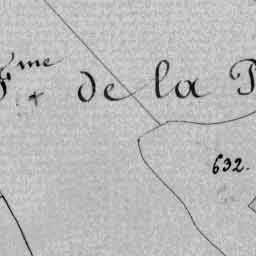 F.me de la P
632.